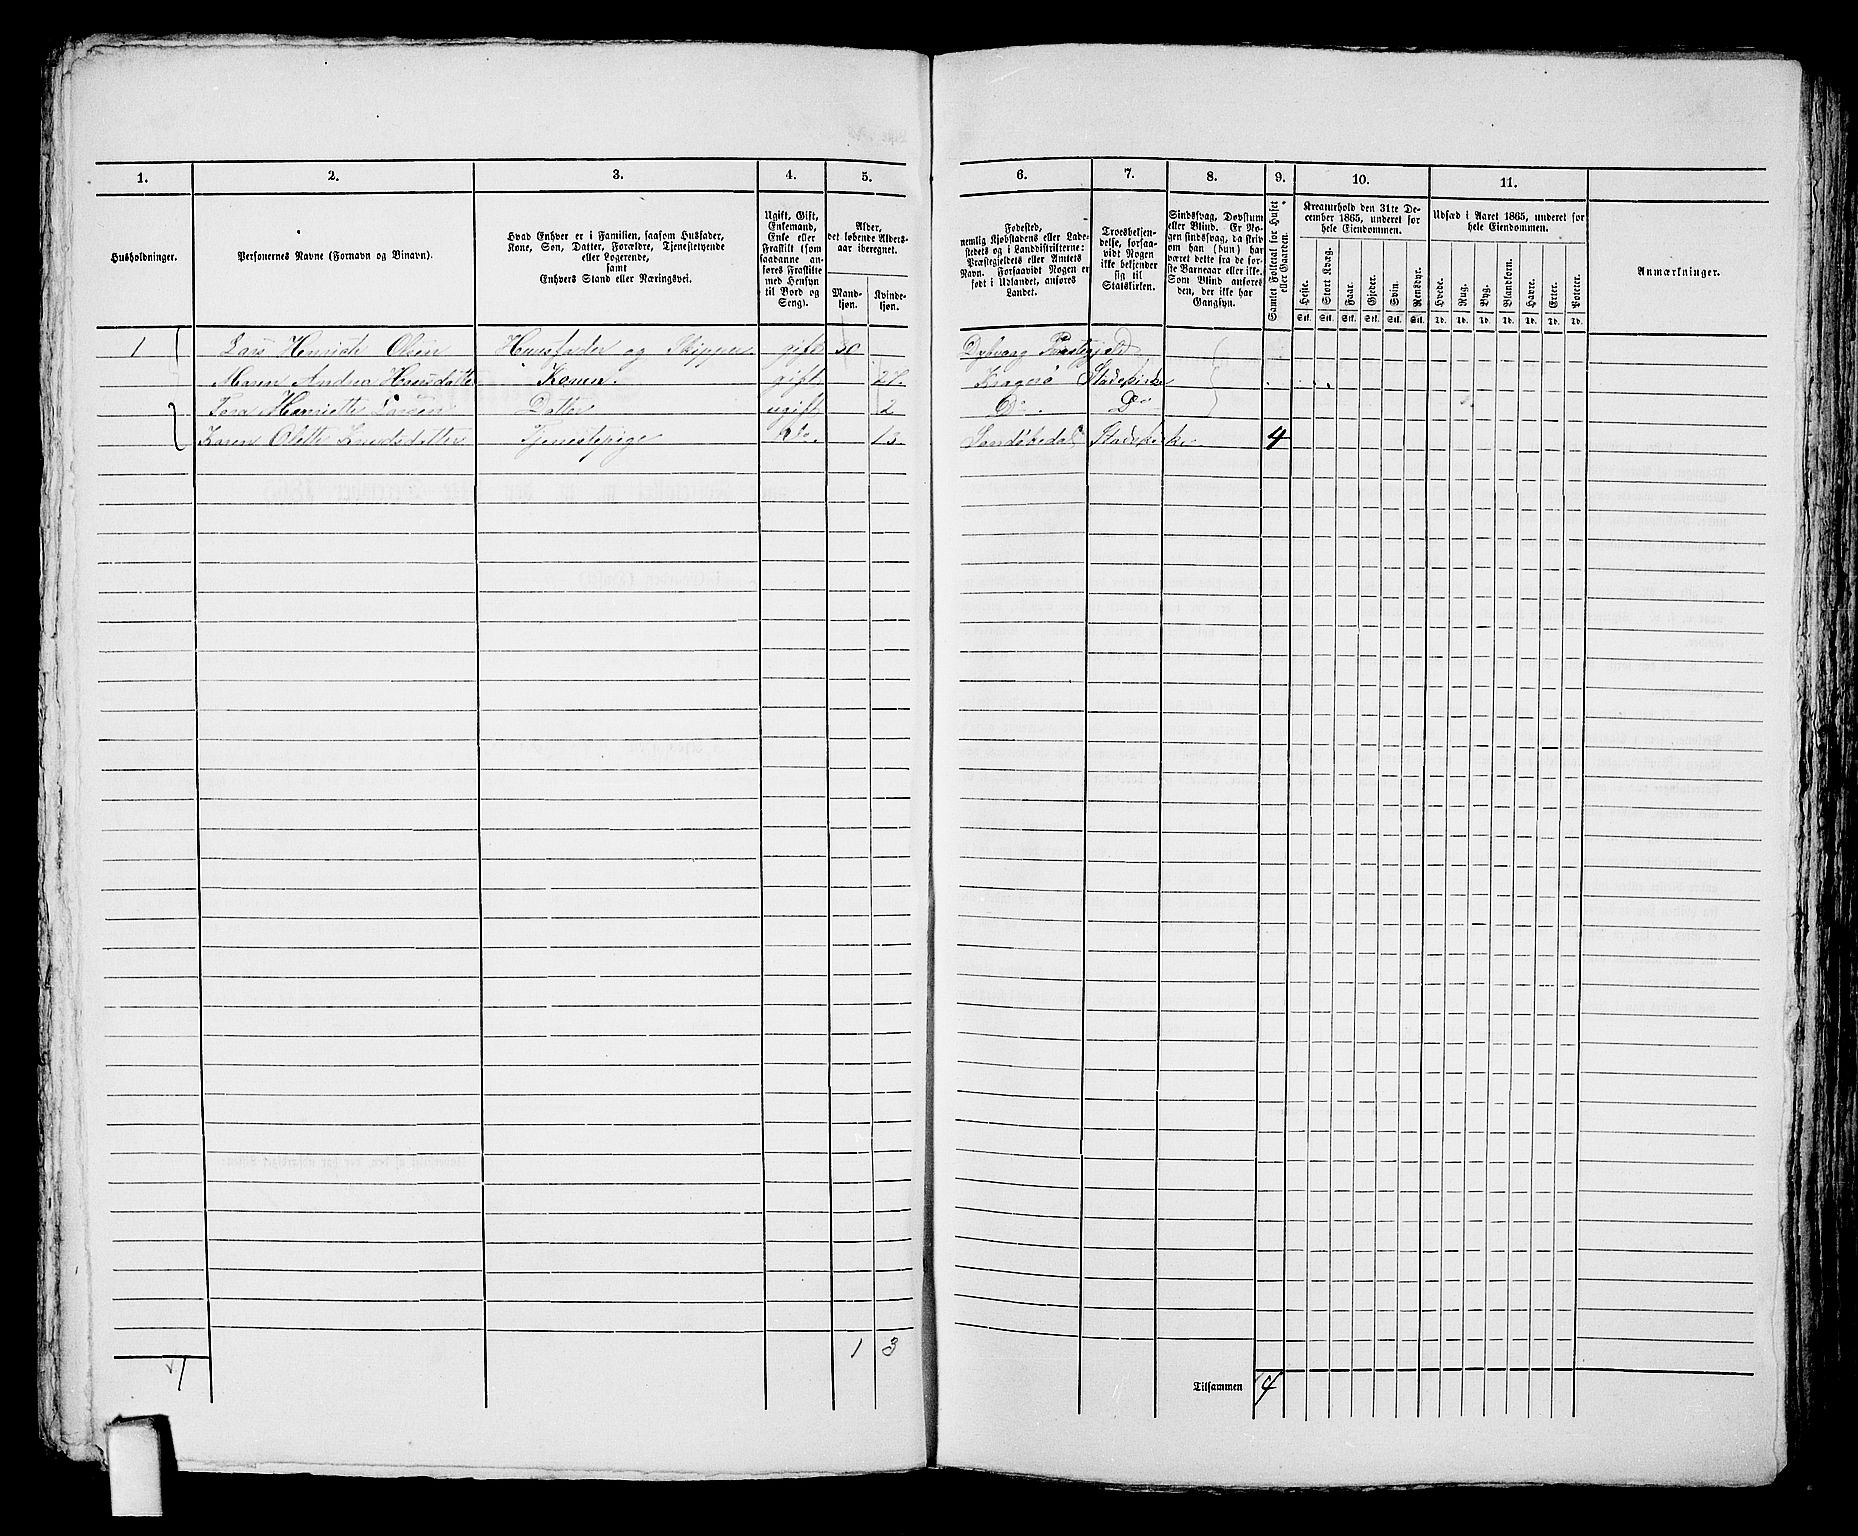 1. 2. 3. 4. 5. 6. 7. 8. 9. 10. 11.
Husholdninger.
Personernes Navne (Fornavn og Tilnavn).
Hvad Enhver er i Familien, saasom Husfader,
Kone, Søn, Datter, Forældre, Tjenestetyende
eller Logerende,
samt
Enhvers Stand eller Næringsvei.
Ugift, Gift,
Enkemand,
Enke eller
Fraskilt (som
saadanne an-
føres Fraskilte
med Hensyn
til Bord og
Seng).
Alder,
det løbende Alders-
aar iberegnet.
Mand-
kjøn.
Kvinde-
kjøn.
Fødested,
nemlig Kjøbstadens eller Lade-
stedets og i Landdistrikterne:
Præstegjeldets eller Annexets
Navn. Forsaavidt Nogen er
født i Udlandet, anføres
Landet.
Troesbekjen-
delse, forsaa-
vidt Nogen
ikke bekjender
sig til
Statskirken.
Sindssvag, Døvstum
eller Blind. Er No-
gen sindssvag, da skriv
om han (hun) har
været dette fra de før-
ste Barneaar eller ikke.
Som Blind anføres
den, der ikke har
Gangsyn.
Samlet Folketal for Huset
eller Gaarden.
Kreaturhold den 31te De-
cember 1865, underet for
hele Eiendommen.
Heste. Stort Kvæg. Faar. Gjeder. Svin. Rensdyr.
Stk. Stk. Stk. Stk. Stk. Stk.
Udsæd i Aaret 1865, underet for
hele Eiendommen.
Hvede. Rug. Byg. Blandkorn. Havre. Erter. Poteter.
Td. Td. Td. Td. Td. Td. Td.
Anmærkninger.
1 Lars Henrich Olsen Huusfader og Skipper gift 30 Dybvaag Præstegjeld
Maren Andrea Hansdatter Konen. gift 27. Kragerø Stadskirke
Henriette Larsen Datter ugift 2 Do Do
Karen Olette Knudsdatter Tjenestepige do. 13. Sandøkedal Stadskirke 4
1 3
1
Tilsammen 4